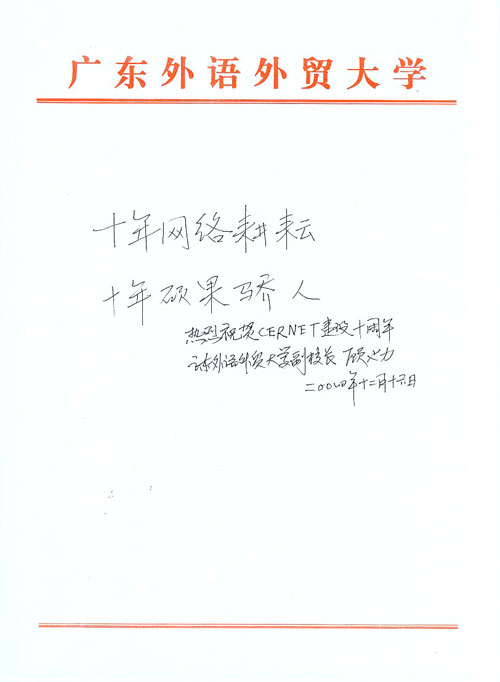 广东外语外贸大学
十年网络耕耘
十年硕果骄人
热烈祝贺CERNET建设十周年
广东外语外贸大学副校长 顾也力
二〇〇四年十二月十六日